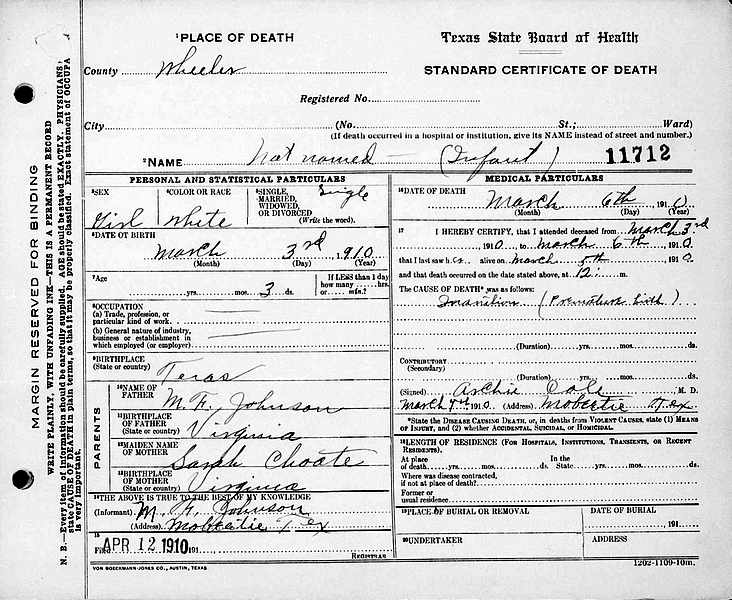 ¹PLACE OF DEATH
Texas State Board of Health
County Wheeler
STANDARD CERTIFICATE OF DEATH
Registered No.
City (No. St.; Ward)
(If death occurred in a hospital or institution, give its NAME instead of street and number.)
²NAME Not named — (Infant) 11712
PERSONAL AND STATISTICAL PARTICULARS
³SEX Girl
⁴COLOR OR RACE White
⁵SINGLE, MARRIED, WIDOWED, OR DIVORCED (Write the word). Single
⁶DATE OF BIRTH
March 3rd 1910
(Month) (Day) (Year)
⁷Age
yrs. mos. 3 ds.
If LESS than 1 day how many hrs. or min.?
⁸OCCUPATION
(a) Trade, profession, or
particular kind of work.
(b) General nature of industry,
business or establishment in
which employed (or employer)
⁹BIRTHPLACE
(State or country) Texas
PARENTS
¹⁰NAME OF FATHER M. F. Johnson
¹¹BIRTHPLACE OF FATHER (State or country) Virginia
¹²MAIDEN NAME OF MOTHER Sarah Choate
¹³BIRTHPLACE OF MOTHER (State or country) Virginia
¹⁴THE ABOVE IS TRUE TO THE BEST OF MY KNOWLEDGE
(Informant) M. F. Johnson
(Address) Mobeetie Tex
¹⁵
Filed APR 12 1910 191
REGISTRAR
MEDICAL PARTICULARS
¹⁶DATE OF DEATH
March 6th 1910
(Month) (Day) (Year)
¹⁷ I HEREBY CERTIFY, that I attended deceased from March 3rd
1910 to March 6th 1910
that I last saw h alive on March 5th 1910
and that death occurred on the date stated above, at 12: m.
The CAUSE OF DEATH* was as follows:
Inanition (Premature birth)
(Duration) yrs. mos. ds.
CONTRIBUTORY
(Secondary)
(Duration) yrs. mos. ds.
(Signed) Archie Cole M. D.
March 1910 (Address) Mobeetie Tex
*State the DISEASE CAUSING DEATH, or, in deaths from VIOLENT CAUSES, state (1) MEANS
OF INJURY, and (2) whether ACCIDENTAL, SUICIDAL, or HOMICIDAL.
¹⁸LENGTH OF RESIDENCE (FOR HOSPITALS, INSTITUTIONS, TRANSIENTS, OR RECENT
RESIDENTS).
At place of death yrs. mos. ds. In the State yrs. mos. ds.
Where was disease contracted,
if not at place of death?
Former or
usual residence
¹⁹PLACE OF BURIAL OR REMOVAL
DATE OF BURIAL
191
²⁰UNDERTAKER
ADDRESS
VON BOECKMANN-JONES CO., AUSTIN, TEXAS
1202-1109-10m.
MARGIN RESERVED FOR BINDING
WRITE PLAINLY, WITH UNFADING INK—THIS IS A PERMANENT RECORD
N. B.—Every item of information should be carefully supplied. AGE should be stated EXACTLY. PHYSICIANS
state CAUSE OF DEATH in plain terms, so that it may be properly classified. Exact statement of OCCUPA
is very important.